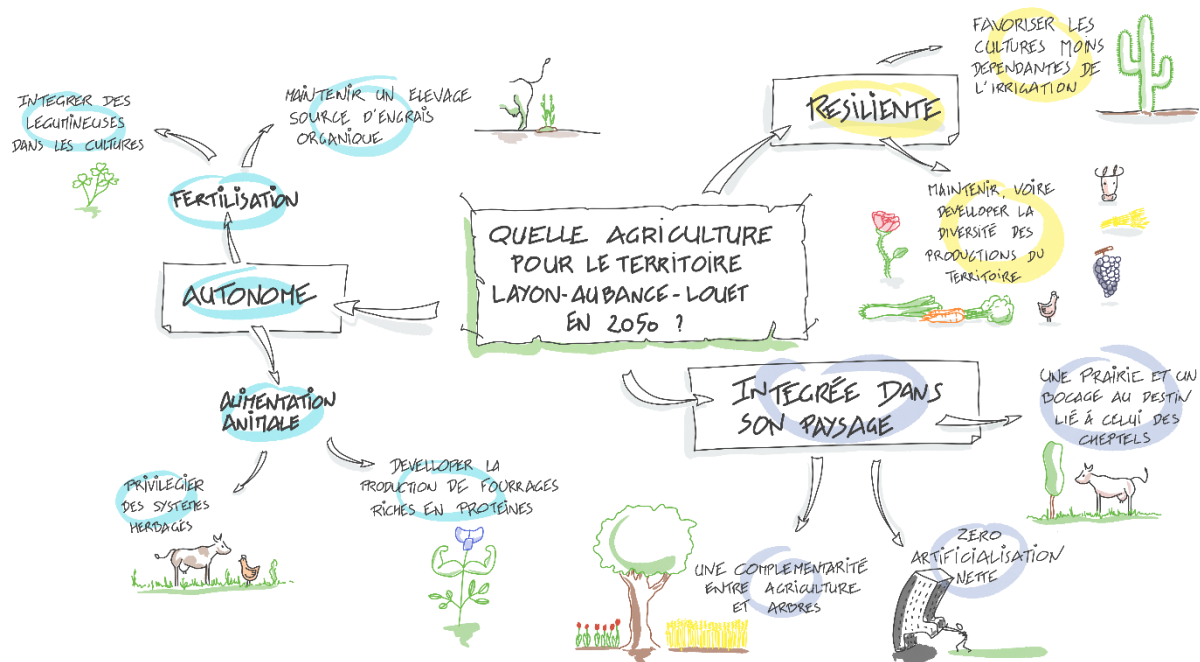 QUELLE AGRICULTURE
POUR LE TERRITOIRE
LAYON-AUBANCE-LOUET
EN 2050 ?
AUTONOME
FERTILISATION
INTEGRER DES
LEGUMINEUSES
DANS LES CULTURES
MAINTENIR UN ELEVAGE
SOURCE D'ENGRAIS
ORGANIQUE
ALIMENTATION
ANIMALE
PRIVILEGIER
DES SYSTEMES
HERBAGES
DEVELLOPER LA
PRODUCTION DE FOURRAGES
RICHES EN PROTEINES
RESILIENTE
FAVORISER LES
CULTURES MOINS
DEPENDANTES DE
L'IRRIGATION
MAINTENIR, VOIRE
DEVELLOPER LA
DIVERSITÉ DES
PRODUCTIONS DU
TERRITOIRE
INTEGRÉE DANS
SON PAYSAGE
UNE PRAIRIE ET UN
BOCAGE AU DESTIN
LIÉ À CELUI DES
CHEPTELS
ZERO
ARTIFICIALISATION
NETTE
UNE COMPLEMENTARITÉ
ENTRE AGRICULTURE
ET ARBRES